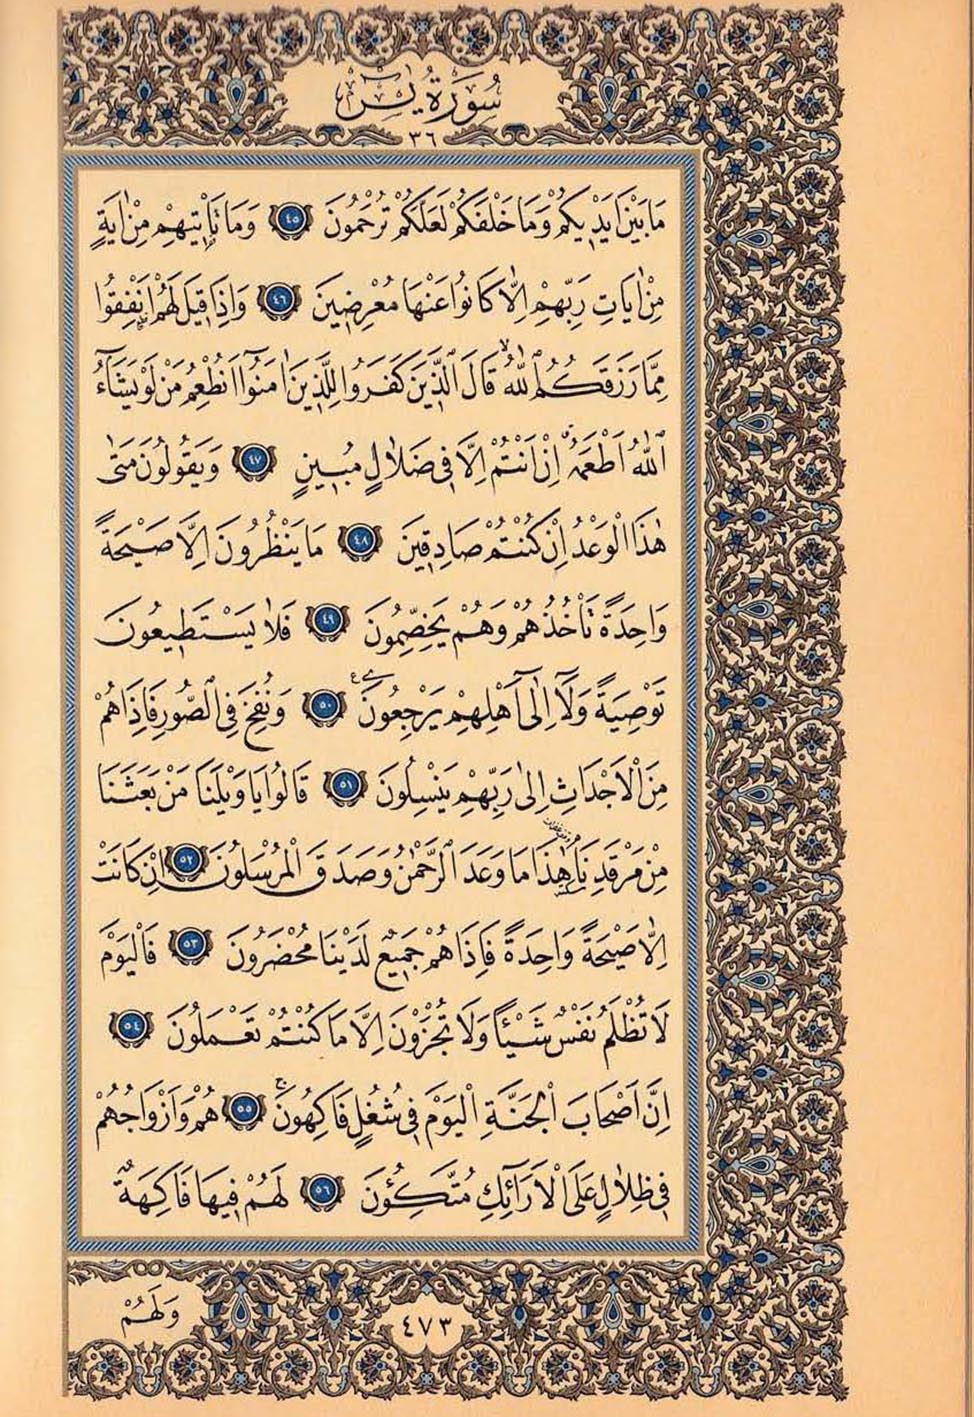 سُورَةُ يٰسٓ
٣٦
مَا بَيْنَ اَيْدٖيكُمْ وَمَا خَلْفَكُمْ لَعَلَّكُمْ تُرْحَمُونَ ٤٥ وَمَا تَأْتٖيهِمْ مِنْ اٰيَةٍ
مِنْ اٰيَاتِ رَبِّهِمْ اِلَّا كَانُوا عَنْهَا مُعْرِضٖينَ ٤٦ وَاِذَا قٖيلَ لَهُمْ اَنْفِقُوا
مِمَّا رَزَقَكُمُ اللّٰهُۙ قَالَ الَّذٖينَ كَفَرُوا لِلَّذٖينَ اٰمَنُٓوا اَنُطْعِمُ مَنْ لَوْ يَشَٓاءُ
اللّٰهُ اَطْعَمَهُۗ اِنْ اَنْتُمْ اِلَّا فٖى ضَلَالٍ مُبٖينٍ ٤٧ وَيَقُولُونَ مَتٰى
هٰذَا الْوَعْدُ اِنْ كُنْتُمْ صَادِقٖينَ ٤٨ مَا يَنْظُرُونَ اِلَّا صَيْحَةً
وَاحِدَةً تَأْخُذُهُمْ وَهُمْ يَخِصِّمُونَ ٤٩ فَلَا يَسْتَطٖيعُونَ
تَوْصِيَةً وَلَٓا اِلٰٓى اَهْلِهِمْ يَرْجِعُونَ ٥٠ وَنُفِخَ فِى الصُّورِ فَاِذَا هُمْ
مِنَ الْاَجْدَاثِ اِلٰى رَبِّهِمْ يَنْسِلُونَ ٥١ قَالُوا يَا وَيْلَنَا مَنْ بَعَثَنَا
مِنْ مَرْقَدِنَا هٰذَا مَا وَعَدَ الرَّحْمٰنُ وَصَدَقَ الْمُرْسَلُونَ ٥٢ اِنْ كَانَتْ
اِلَّا صَيْحَةً وَاحِدَةً فَاِذَا هُمْ جَمٖيعٌ لَدَيْنَا مُحْضَرُونَ ٥٣ فَالْيَوْمَ
لَا تُظْلَمُ نَفْسٌ شَيْـًٔا وَلَا تُجْزَوْنَ اِلَّا مَا كُنْتُمْ تَعْمَلُونَ ٥٤
اِنَّ اَصْحَابَ الْجَنَّةِ الْيَوْمَ فٖى شُغُلٍ فَاكِهُونَۚ ٥٥ هُمْ وَاَزْوَاجُهُمْ
فٖى ظِلَالٍ عَلَى الْاَرَٓائِكِ مُتَّكِـُٔونَ ٥٦ لَهُمْ فٖيهَا فَاكِهَةٌ
٤٧٣
وَلَهُمْ